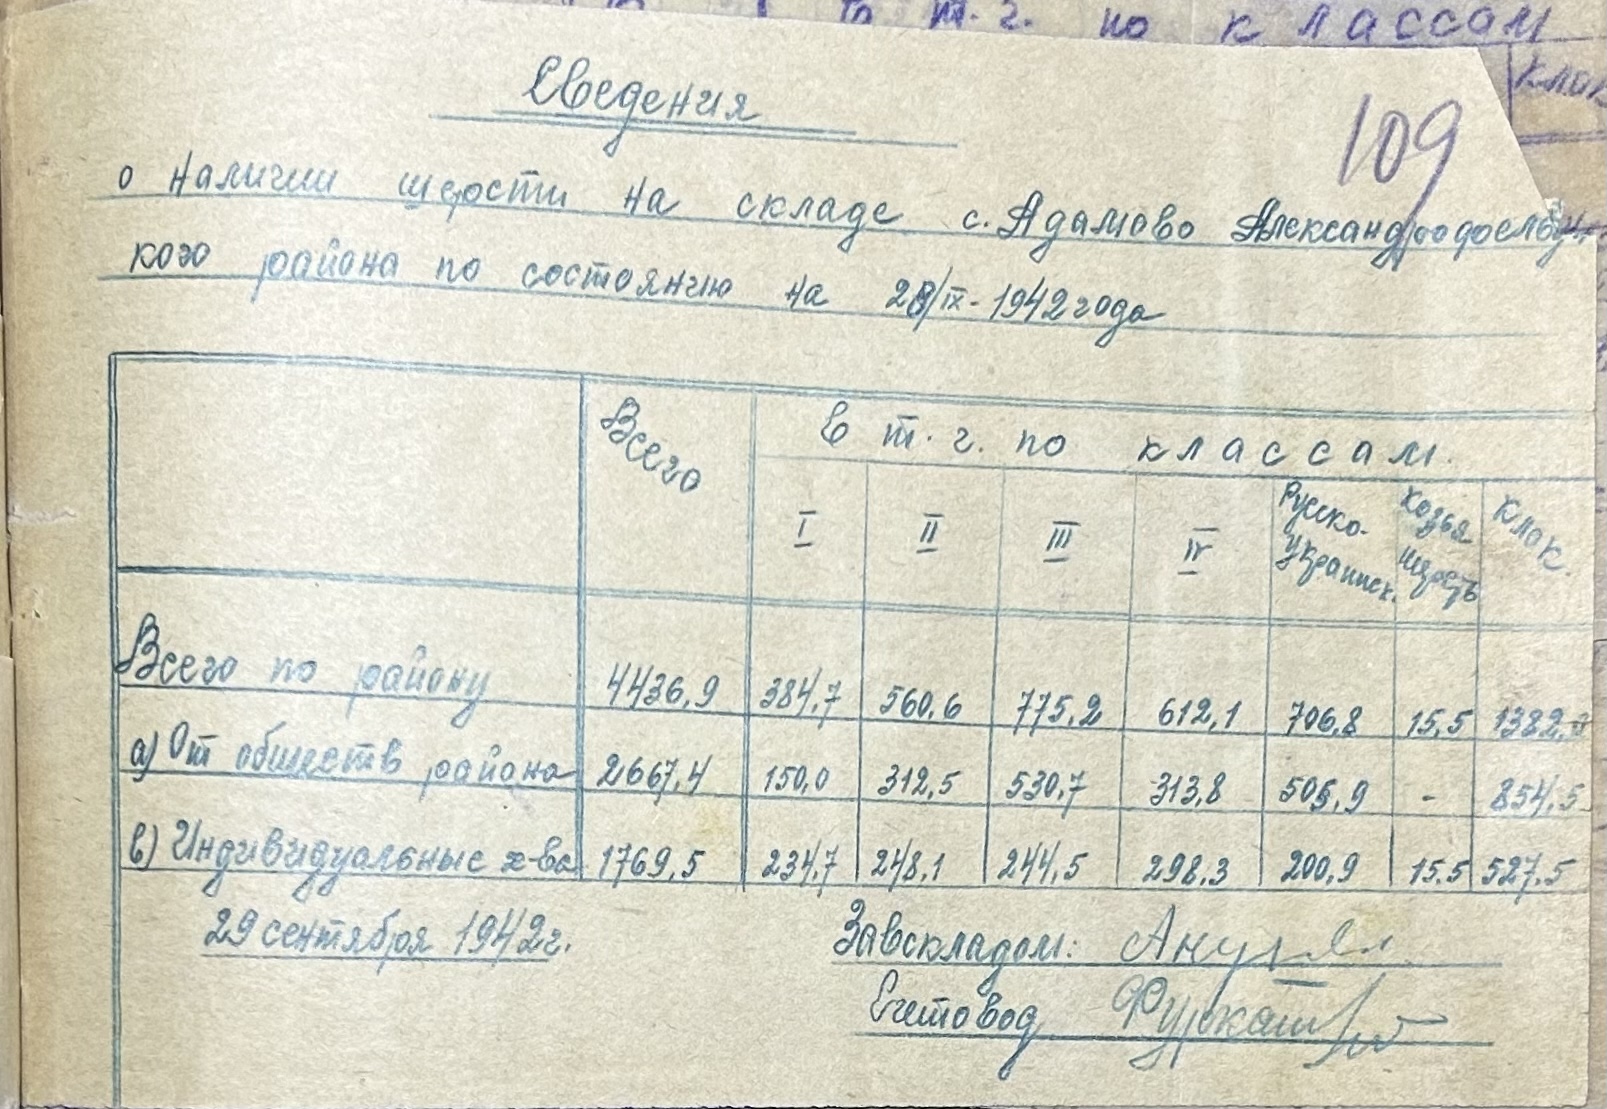 т.г. по классам
клок
Сведения
109
о наличии шерсти на складе с. Адамово
кого района по состоянию на 28/IX-1942 года
Всего
в т.г. по классам.
I II III IV Русско-украинск. козья шерсть клок.
Всего по району 4436,9 384,7 560,6 775,2 612,1 706,8 15,5
а) От обществ района 2667,4 150,0 312,5 530,7 313,8 505,9 - 854,5
в) Индивидуальные х-ва 1769,5 234,7 248,1 244,5 298,3 200,9 15.5 527,5
29 сентября 1942 г.
Завскладом:
Счетовод